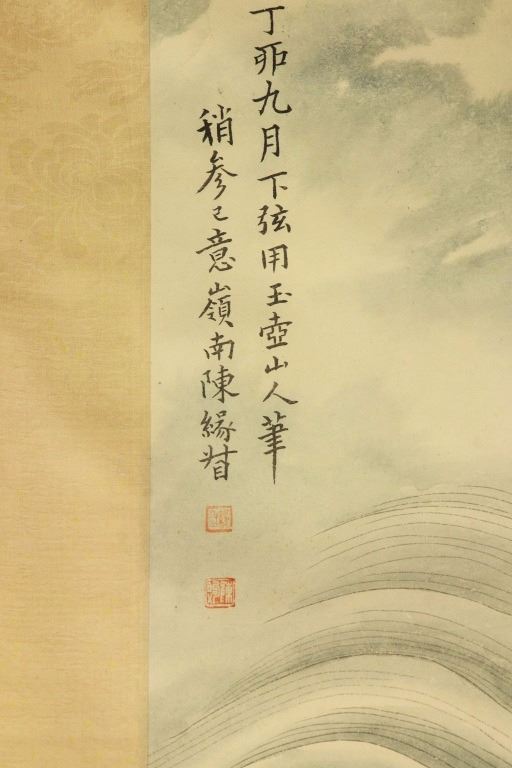 丁卯九月下弦用玉壺山人筆
稍参己意嶺南陳緣督